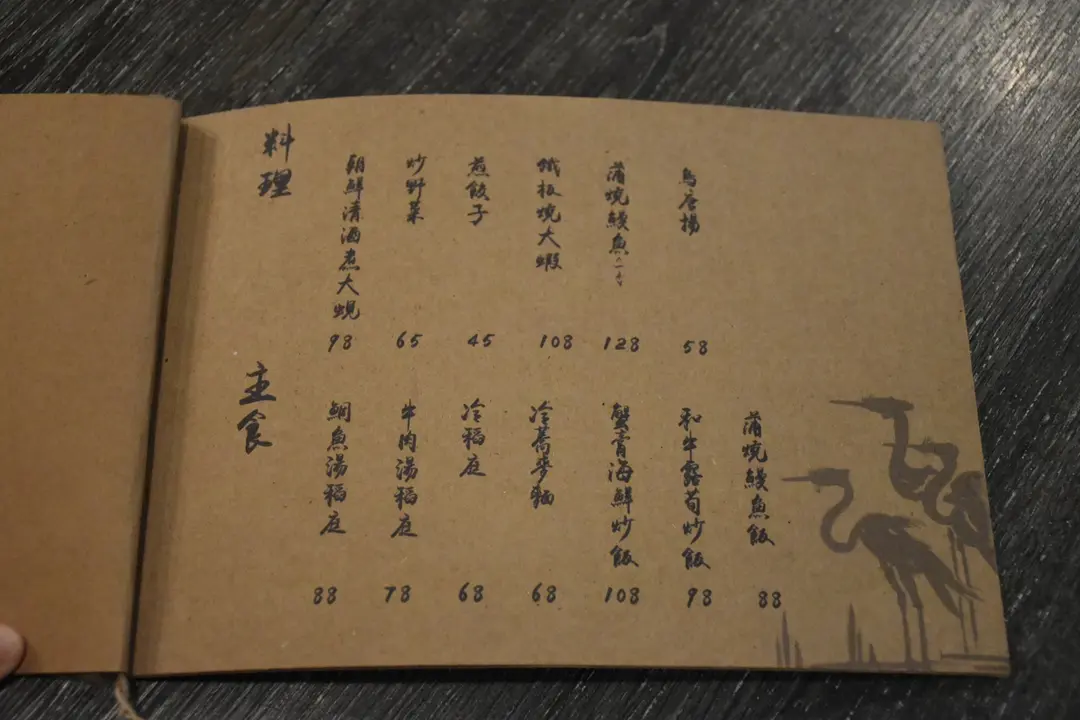 料理
朝鮮清酒煮大蜆
98
炒野菜
65
煎餃子
45
鐵板燒大蝦
108
蒲燒鰻魚
128
鳥唐揚
58
主食
鯛魚湯稻庭
88
牛肉湯稻庭
78
冷稻庭
68
冷蕎麥麵
68
蟹膏海鮮炒飯
108
和牛露荀炒飯
98
蒲燒鰻魚飯
88